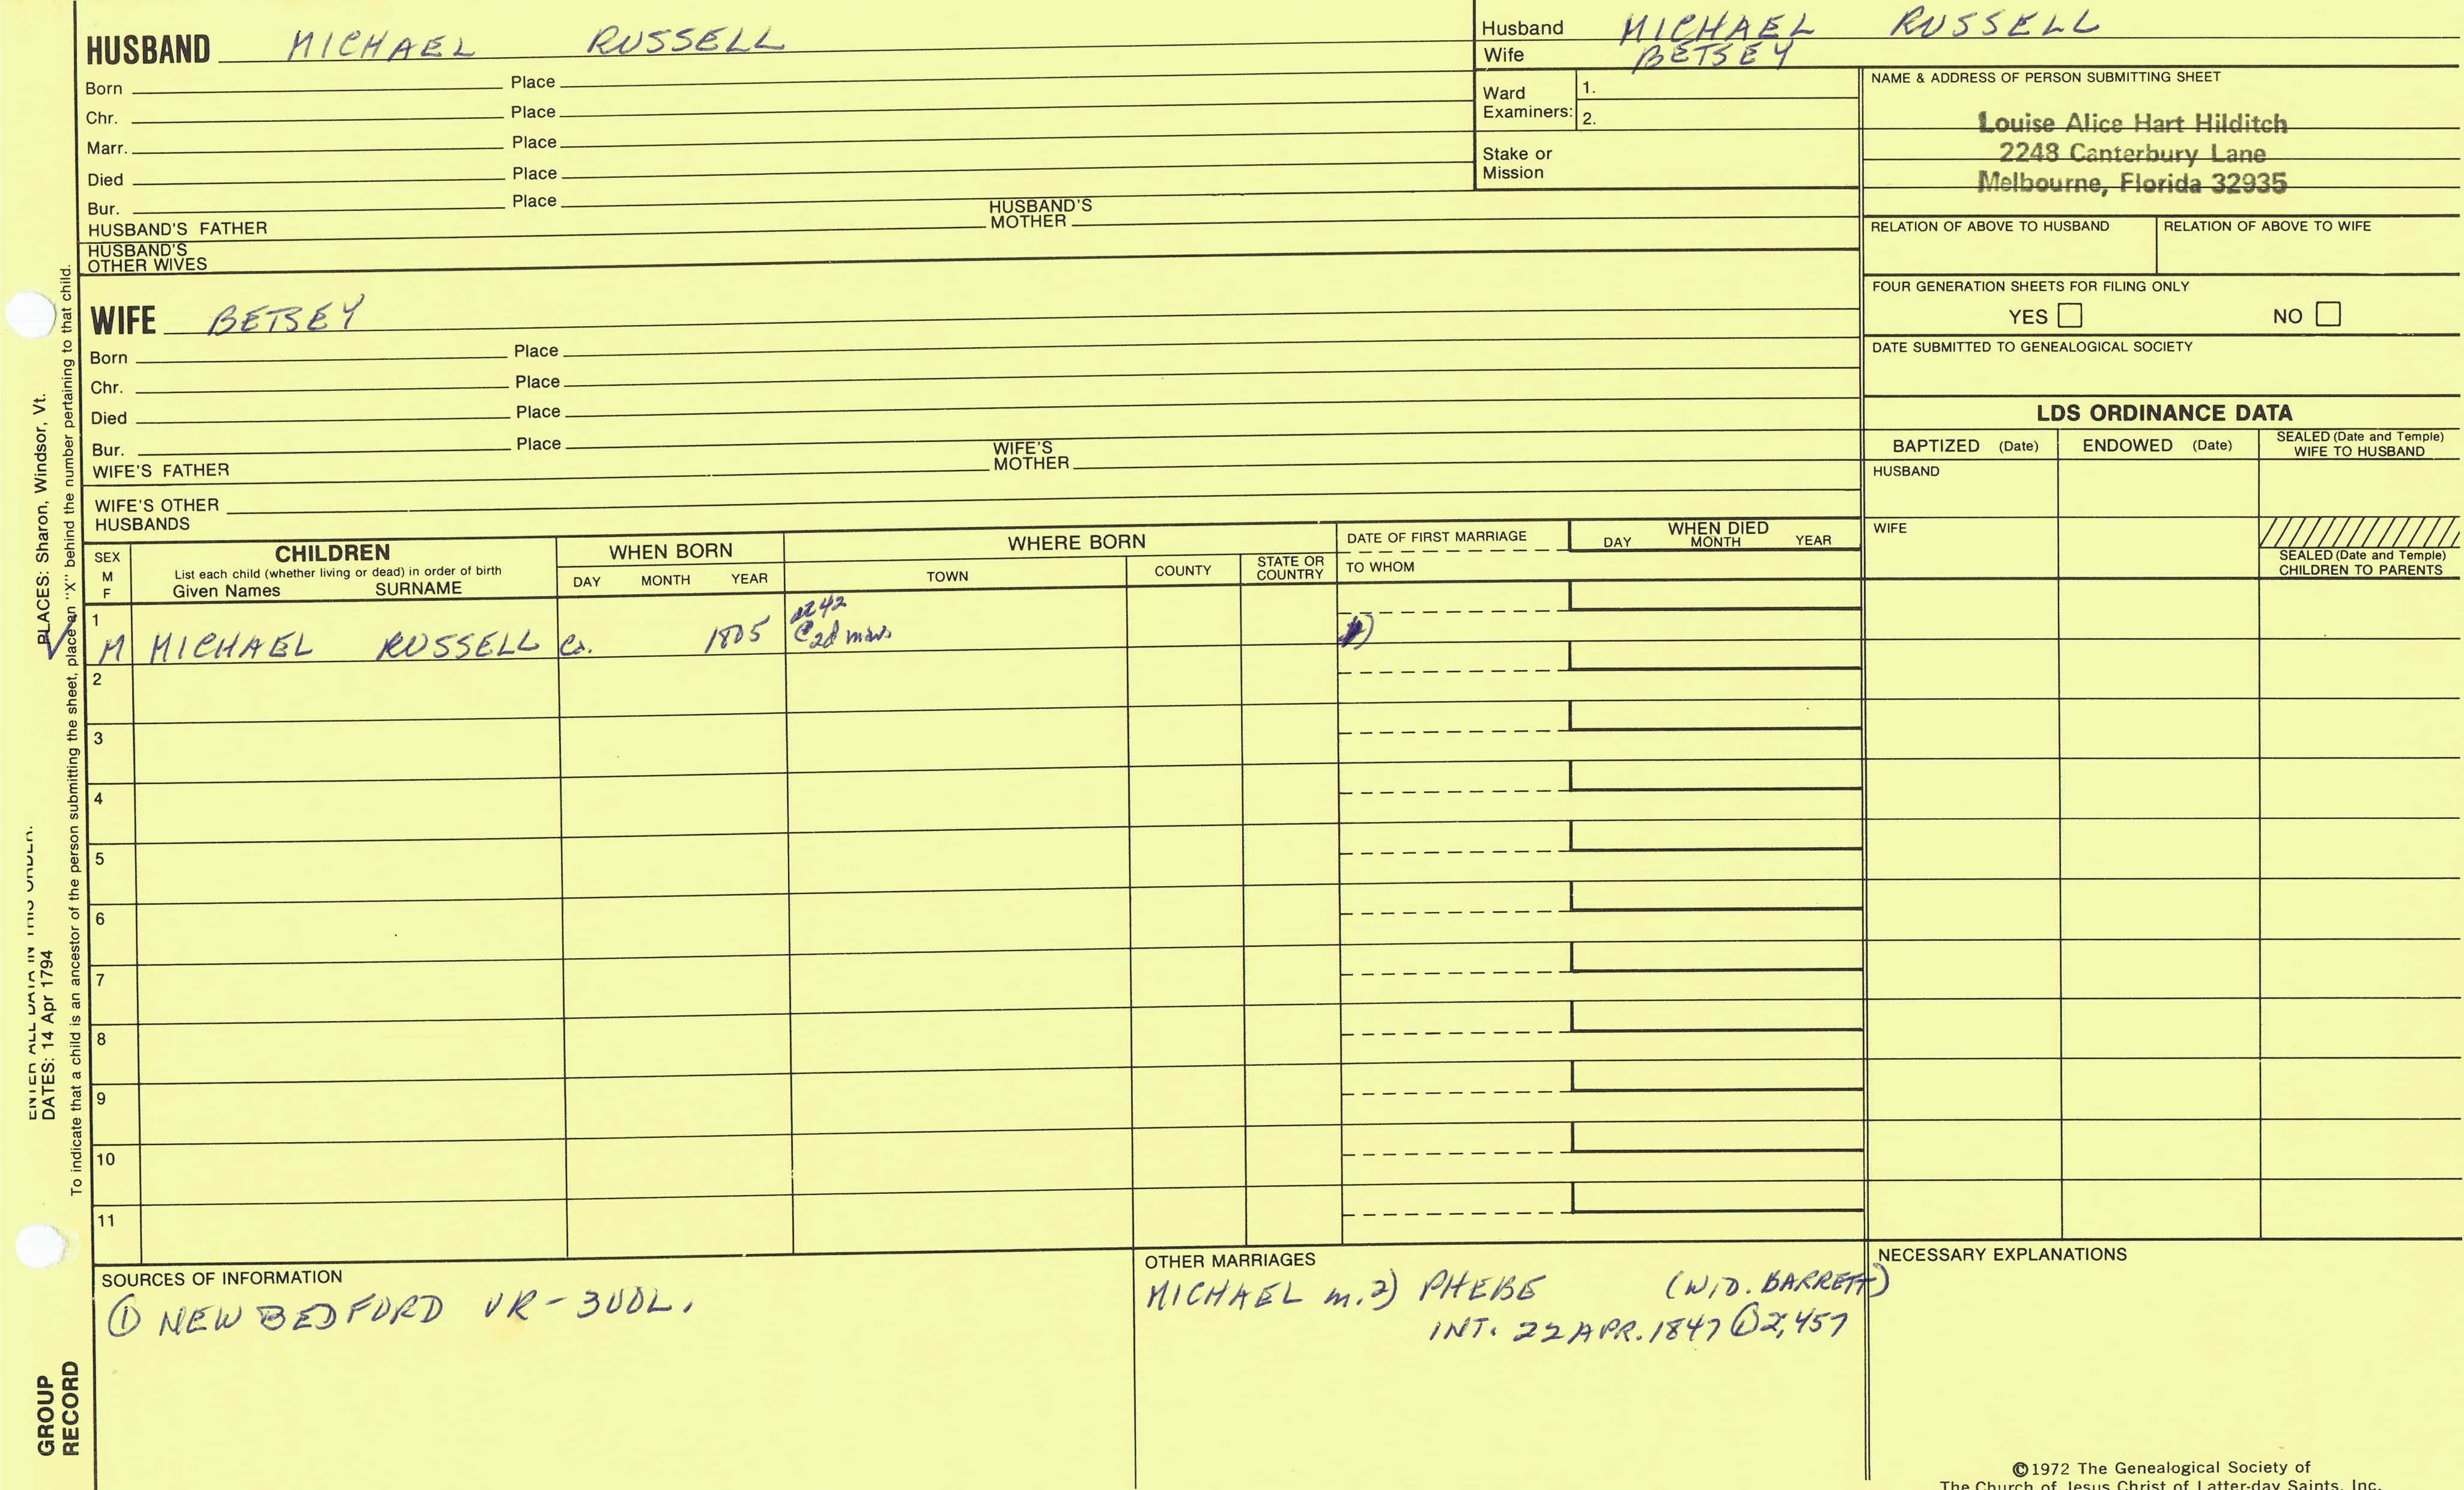 HUSBAND MICHAEL RUSSELL
Born Place
Chr. Place
Marr. Place
Died Place
Bur. Place
HUSBAND'S FATHER HUSBAND'S MOTHER
HUSBAND'S OTHER WIVES
Husband MICHAEL RUSSELL
Wife BETSEY
Ward Examiners: 1.
2.
Stake or Mission
NAME & ADDRESS OF PERSON SUBMITTING SHEET
Louise Alice Hart Hilditch
2248 Canterbury Lane
Melbourne, Florida 32935
RELATION OF ABOVE TO HUSBAND RELATION OF ABOVE TO WIFE
FOUR GENERATION SHEETS FOR FILING ONLY
YES NO
DATE SUBMITTED TO GENEALOGICAL SOCIETY
WIFE BETSEY
Born Place
Chr. Place
Died Place
Bur. Place
WIFE'S FATHER WIFE'S MOTHER
WIFE'S OTHER HUSBANDS
LDS ORDINANCE DATA
BAPTIZED (Date) ENDOWED (Date) SEALED (Date and Temple) WIFE TO HUSBAND
HUSBAND
WIFE
SEALED (Date and Temple) CHILDREN TO PARENTS
SEX M F
CHILDREN
List each child (whether living or dead) in order of birth
Given Names SURNAME
WHEN BORN
DAY MONTH YEAR
WHERE BORN
TOWN COUNTY STATE OR COUNTRY
DATE OF FIRST MARRIAGE
TO WHOM
WHEN DIED
DAY MONTH YEAR
1
42
M MICHAEL RUSSELL Ca. 1805 @ 2d mar.
2
3
4
5
6
7
8
9
10
11
SOURCES OF INFORMATION
① NEW BEDFORD VR-3VOL.
OTHER MARRIAGES
MICHAEL m. 2) PHEBE (WID. BARRETT)
INT. 22 APR. 1847 ① 2,457
NECESSARY EXPLANATIONS
©1972 The Genealogical Society of
The Church of Jesus Christ of Latter-day Saints, Inc.
PLACES: Sharon, Windsor, Vt.
To indicate that a child is an ancestor of the person submitting the sheet, place an "X" behind the number pertaining to that child.
ENTER ALL DATA IN THIS ORDER.
DATES: 14 Apr 1794
GROUP
RECORD